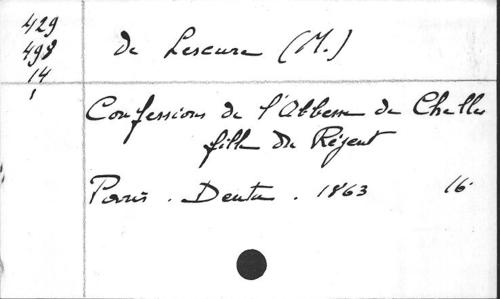 429
498
14
1
de Lescure (M.)
Confessions de l'Abbesse de Chelles
fille du Régent
Paris . Dentu . 1863 16.